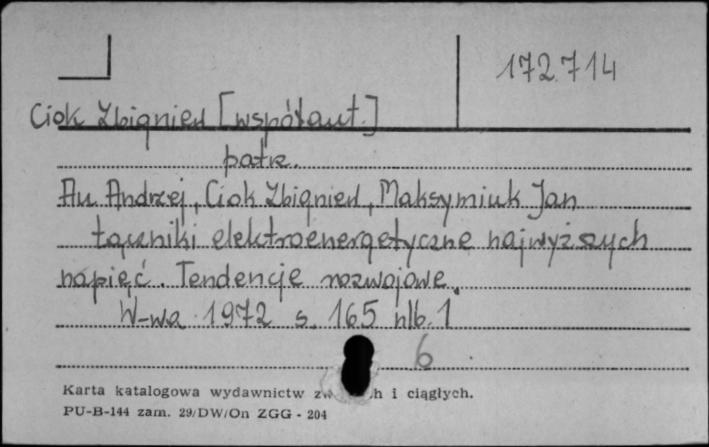 172714
Ciok Zbigniew [współaut.]
patrz.
Au Andrzej, Ciok Zbigniew, Maksymiuk Jan
Łączniki elektroenergetyczne najwyższych
napięć. Tendencje rozwojowe.
W-wa 1972 s. 165 nlb. 1
6
Karta katalogowa wydawnictw i ciągłych.
PU-B-144 zam. 29/DW/On ZGG - 204